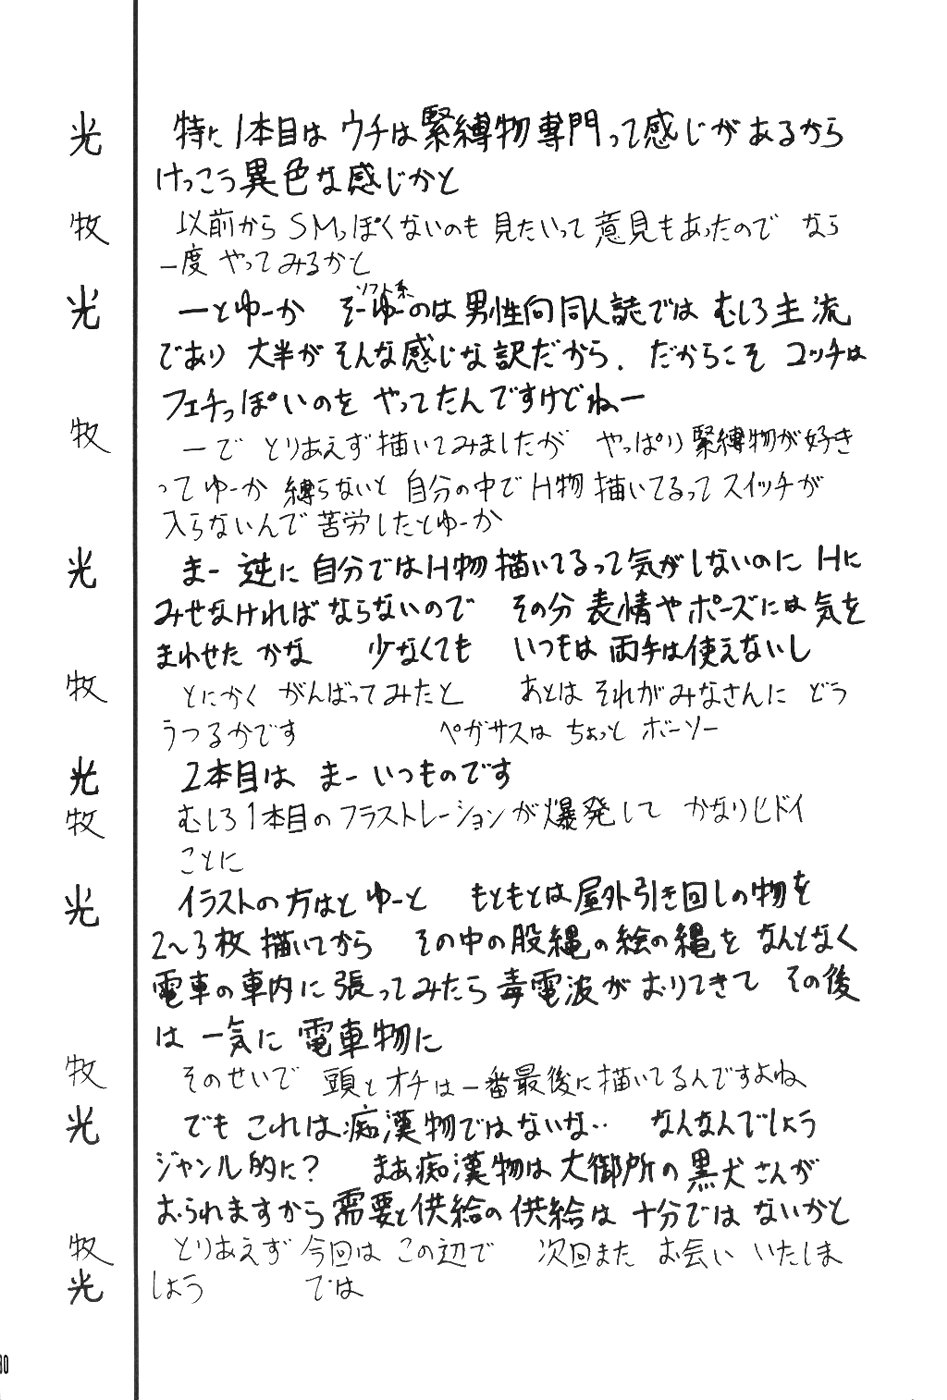 光　特に1本目は ウチは緊縛物専門って感じがあるから
けっこう異色な感じかと
牧　以前から SMっぽくないのも 見たいって 意見もあったので なら
一度 やってみるかと
光　ーとゆーか そーゆーのは 男性向同人誌では むしろ主流
ソフト系
であり 大半が そんな感じな訳だから. だからこそ コッチは
フェチっぽいのを やってたんですけどねー
牧　ーで とりあえず描いてみましたが やっぱり緊縛物が好き
ってゆーか 縛らないと 自分の中で H物 描いてるって スイッチが
入らないんで 苦労したとゆーか
光　まー 逆に 自分ではH物描いてるって気がしないのに Hに
みせなければ ならないので その分 表情や ポーズには 気を
まわせた かな 少なくても いつもは 両手は使えないし
牧　とにかく がんばってみたと あとは それが みなさんに どう
うつるかです ペガサスは ちょっと ボーソー
光　2本目は まー いつものです
牧　むしろ1本目のフラストレーションが爆発して かなりヒドイ
ことに
光　イラストの方はと ゆーと もともとは 屋外引き回しの物を
2〜3枚 描いてから その中の股縄の絵の縄を なんとなく
電車の車内に張ってみたら毒電波がおりてきて その後
は 一気に 電車物に
牧　そのせいで 頭とオチは一番最後に描いてるんですよね
光　でも これは痴漢物ではないな‥ なんなんでしょう
ジャンル的に? まあ痴漢物は 大御所の 黒犬さんが
おられますから 需要と供給の 供給は 十分では ないかと
牧　とりあえず 今回は この辺で 次回また お会い いたしま
光　しょう では
30